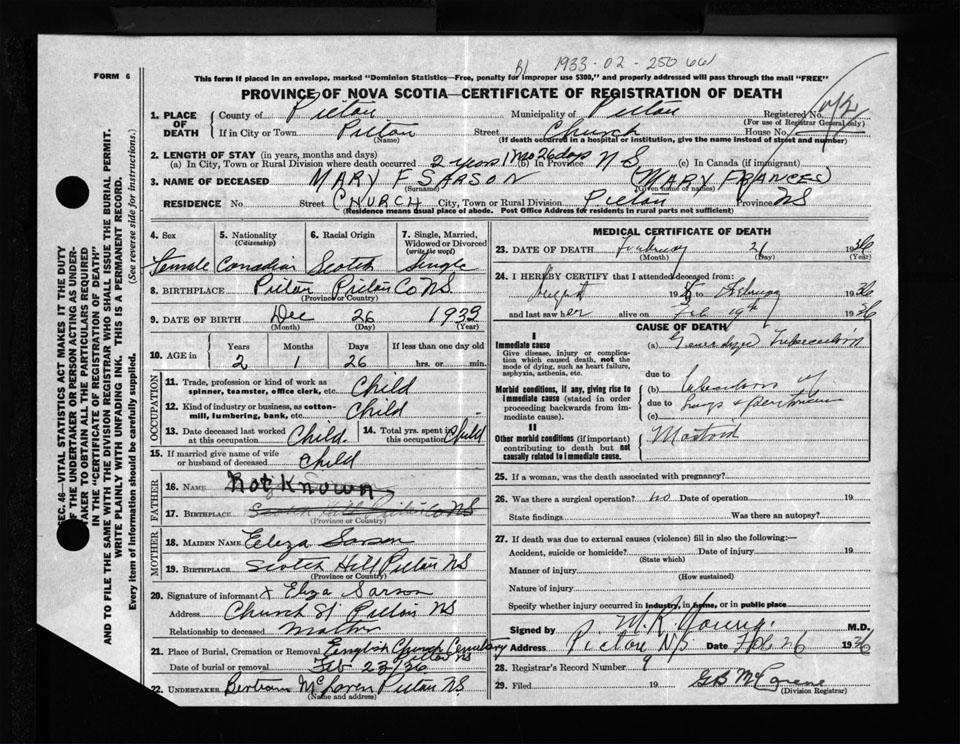 1933-02-250
FORM 6
This form if placed in an envelope, marked "Dominion Statistics—Free, penalty for improper use $300," and properly addressed will pass through the mail "FREE"
PROVINCE OF NOVA SCOTIA—CERTIFICATE OF REGISTRATION OF DEATH
1. PLACE OF DEATH County of Pictou Municipality of Pictou Registered No.
(For use of Registrar General only)
If in City or Town Pictou Street Church House No.
(Name) (If death occurred in a hospital or institution, give the name instead of street and number)
2. LENGTH OF STAY (in years, months and days)
(a) In City, Town or Rural Division where death occurred 2 years 1 mo 26 days (b) In Province NS (c) In Canada (if immigrant)
3. NAME OF DECEASED MARY F SARSON (MARY FRANCES)
(Surname) (Given name or names)
RESIDENCE No. Street CHURCH City, Town or Rural Division Pictou Province NS
(Residence means usual place of abode. Post Office Address for residents in rural parts not sufficient)
4. Sex 5. Nationality (Citizenship) 6. Racial Origin 7. Single, Married, Widowed or Divorced (write the word)
Female Canadian Scotch Single
8. BIRTHPLACE Pictou Pictou Co NS
(Province or Country)
9. DATE OF BIRTH Dec 26 1933
(Month) (Day) (Year)
10. AGE in Years Months Days If less than one day old
2 1 26 hrs. or min.
OCCUPATION
11. Trade, profession or kind of work as spinner, teamster, office clerk, etc. Child
12. Kind of industry or business, as cotton-mill, lumbering, bank, etc. Child
13. Date deceased last worked at this occupation Child. 14. Total yrs. spent in this occupation Child
15. If married give name of wife or husband of deceased Child
FATHER
16. NAME Not Known
17. BIRTHPLACE
(Province or Country)
MOTHER
18. MAIDEN NAME Eliza Sarson
19. BIRTHPLACE Scotch Hill Pictou NS
(Province or Country)
20. Signature of informant x Eliza Sarson
Address Church St Pictou NS
Relationship to deceased Mother
21. Place of Burial, Cremation or Removal English Church Cemetery Pictou NS
Date of burial or removal Feb 23/36
22. UNDERTAKER Bertram McLaren Pictou N.S.
(Name and address)
MEDICAL CERTIFICATE OF DEATH
23. DATE OF DEATH February 21 1936
(Month) (Day) (Year)
24. I HEREBY CERTIFY that I attended deceased from:
August 193 to February 1936
and last saw her alive on Feb 19th 1936
CAUSE OF DEATH
I
Immediate cause
Give disease, injury or complication which caused death, not the mode of dying, such as heart failure, asphyxia, asthenia, etc.
(a) Generalized Tuberculosis
due to
Morbid conditions, if any, giving rise to immediate cause (stated in order proceeding backwards from immediate cause).
(b)
due to Lungs & peritoneum
(c)
II
Other morbid conditions (if important) contributing to death but not causally related to immediate cause.
25. If a woman, was the death associated with pregnancy?
26. Was there a surgical operation? no Date of operation 19
State findings Was there an autopsy?
27. If death was due to external causes (violence) fill in also the following:—
Accident, suicide or homicide? Date of injury 19
(State which)
Manner of injury
(How sustained)
Nature of injury
Specify whether injury occurred in industry, in home, or in public place
Signed by M.R. Young. M.D.
Address Pictou N/S Date Feb 26 1936
28. Registrar's Record Number 9
29. Filed 19
(Division Registrar)
SEC. 46—VITAL STATISTICS ACT MAKES IT THE DUTY
OF THE UNDERTAKER OR PERSON ACTING AS UNDERTAKER TO OBTAIN ALL THE PARTICULARS REQUIRED
IN THE "CERTIFICATE OF REGISTRATION OF DEATH"
AND TO FILE THE SAME WITH THE DIVISION REGISTRAR WHO SHALL ISSUE THE BURIAL PERMIT.
WRITE PLAINLY WITH UNFADING INK. THIS IS A PERMANENT RECORD.
Every item of information should be carefully supplied. (See reverse side for instructions.)